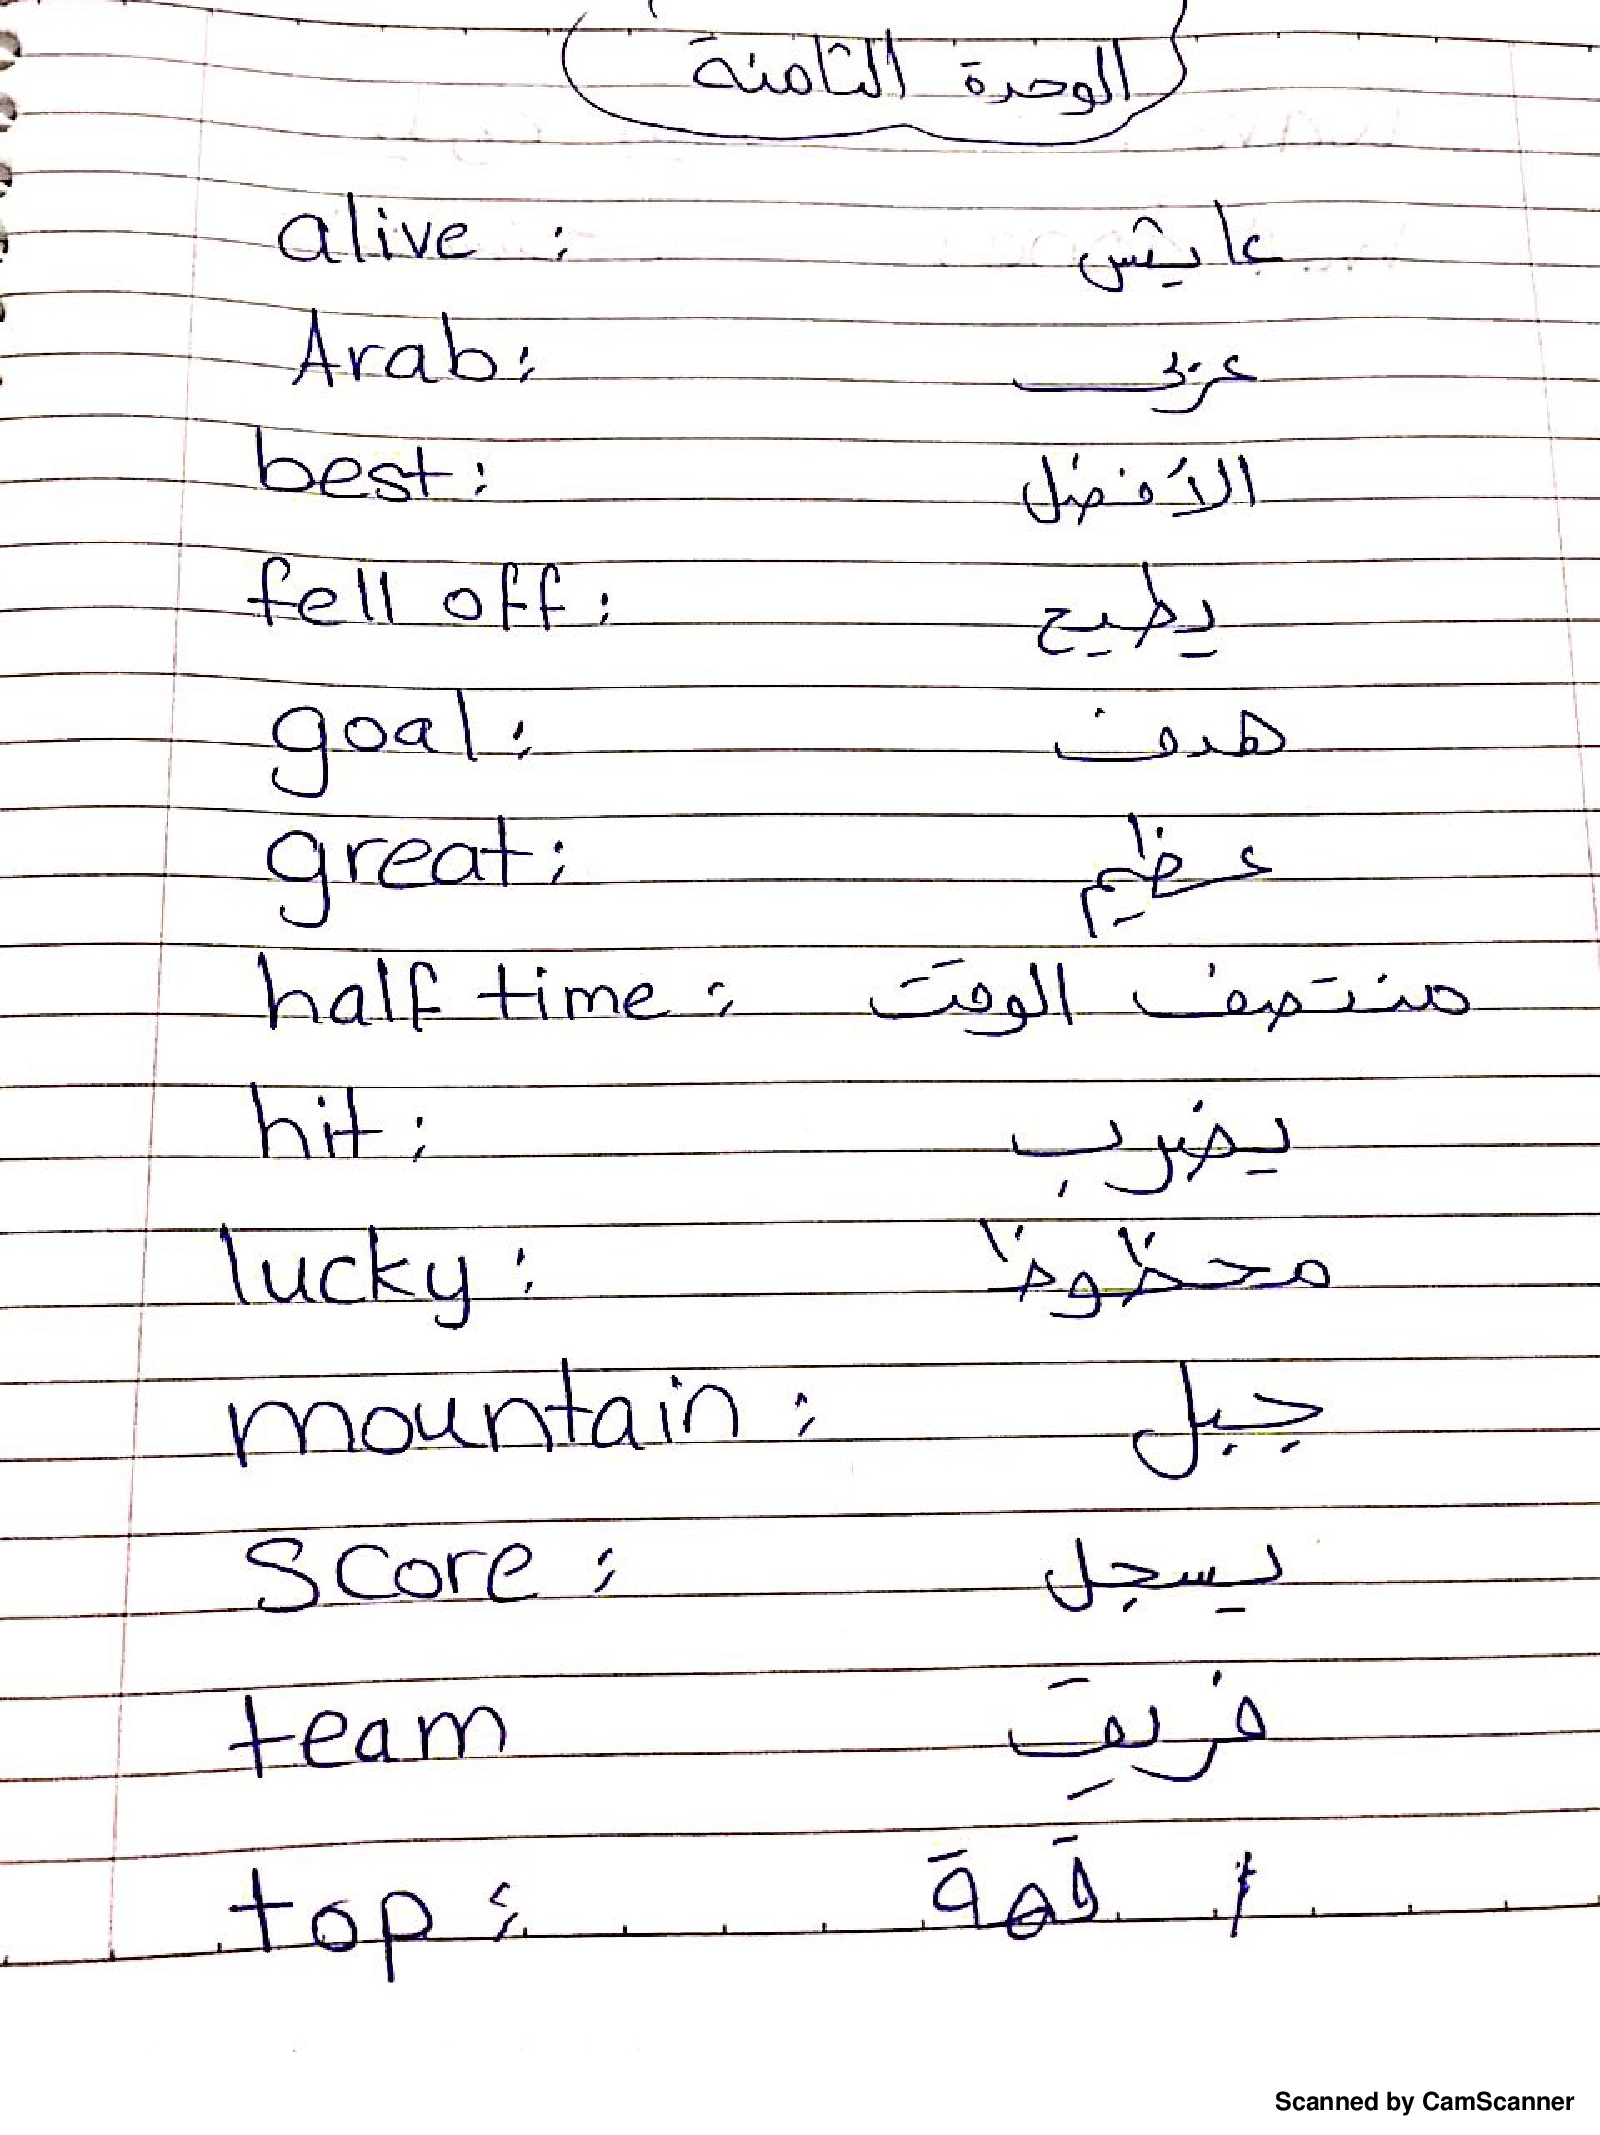 الوحدة الثامنة
alive : عايش
Arab: عربي
best: الأفضل
fell off: يطيح
goal: هدف
great: عظيم
half time: منتصف الوقت
hit: يضرب
lucky: محظوظ
mountain: جبل
score: يسجل
team فريق
top: قمة
Scanned by CamScanner